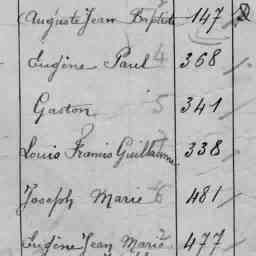 Auguste Jean Baptiste 147
Eugène Paul 4 368
Gaston 5 341
Louis Francis Guillaume 338
Joseph Marie 6 481
Eugène Jean Marie 2 477